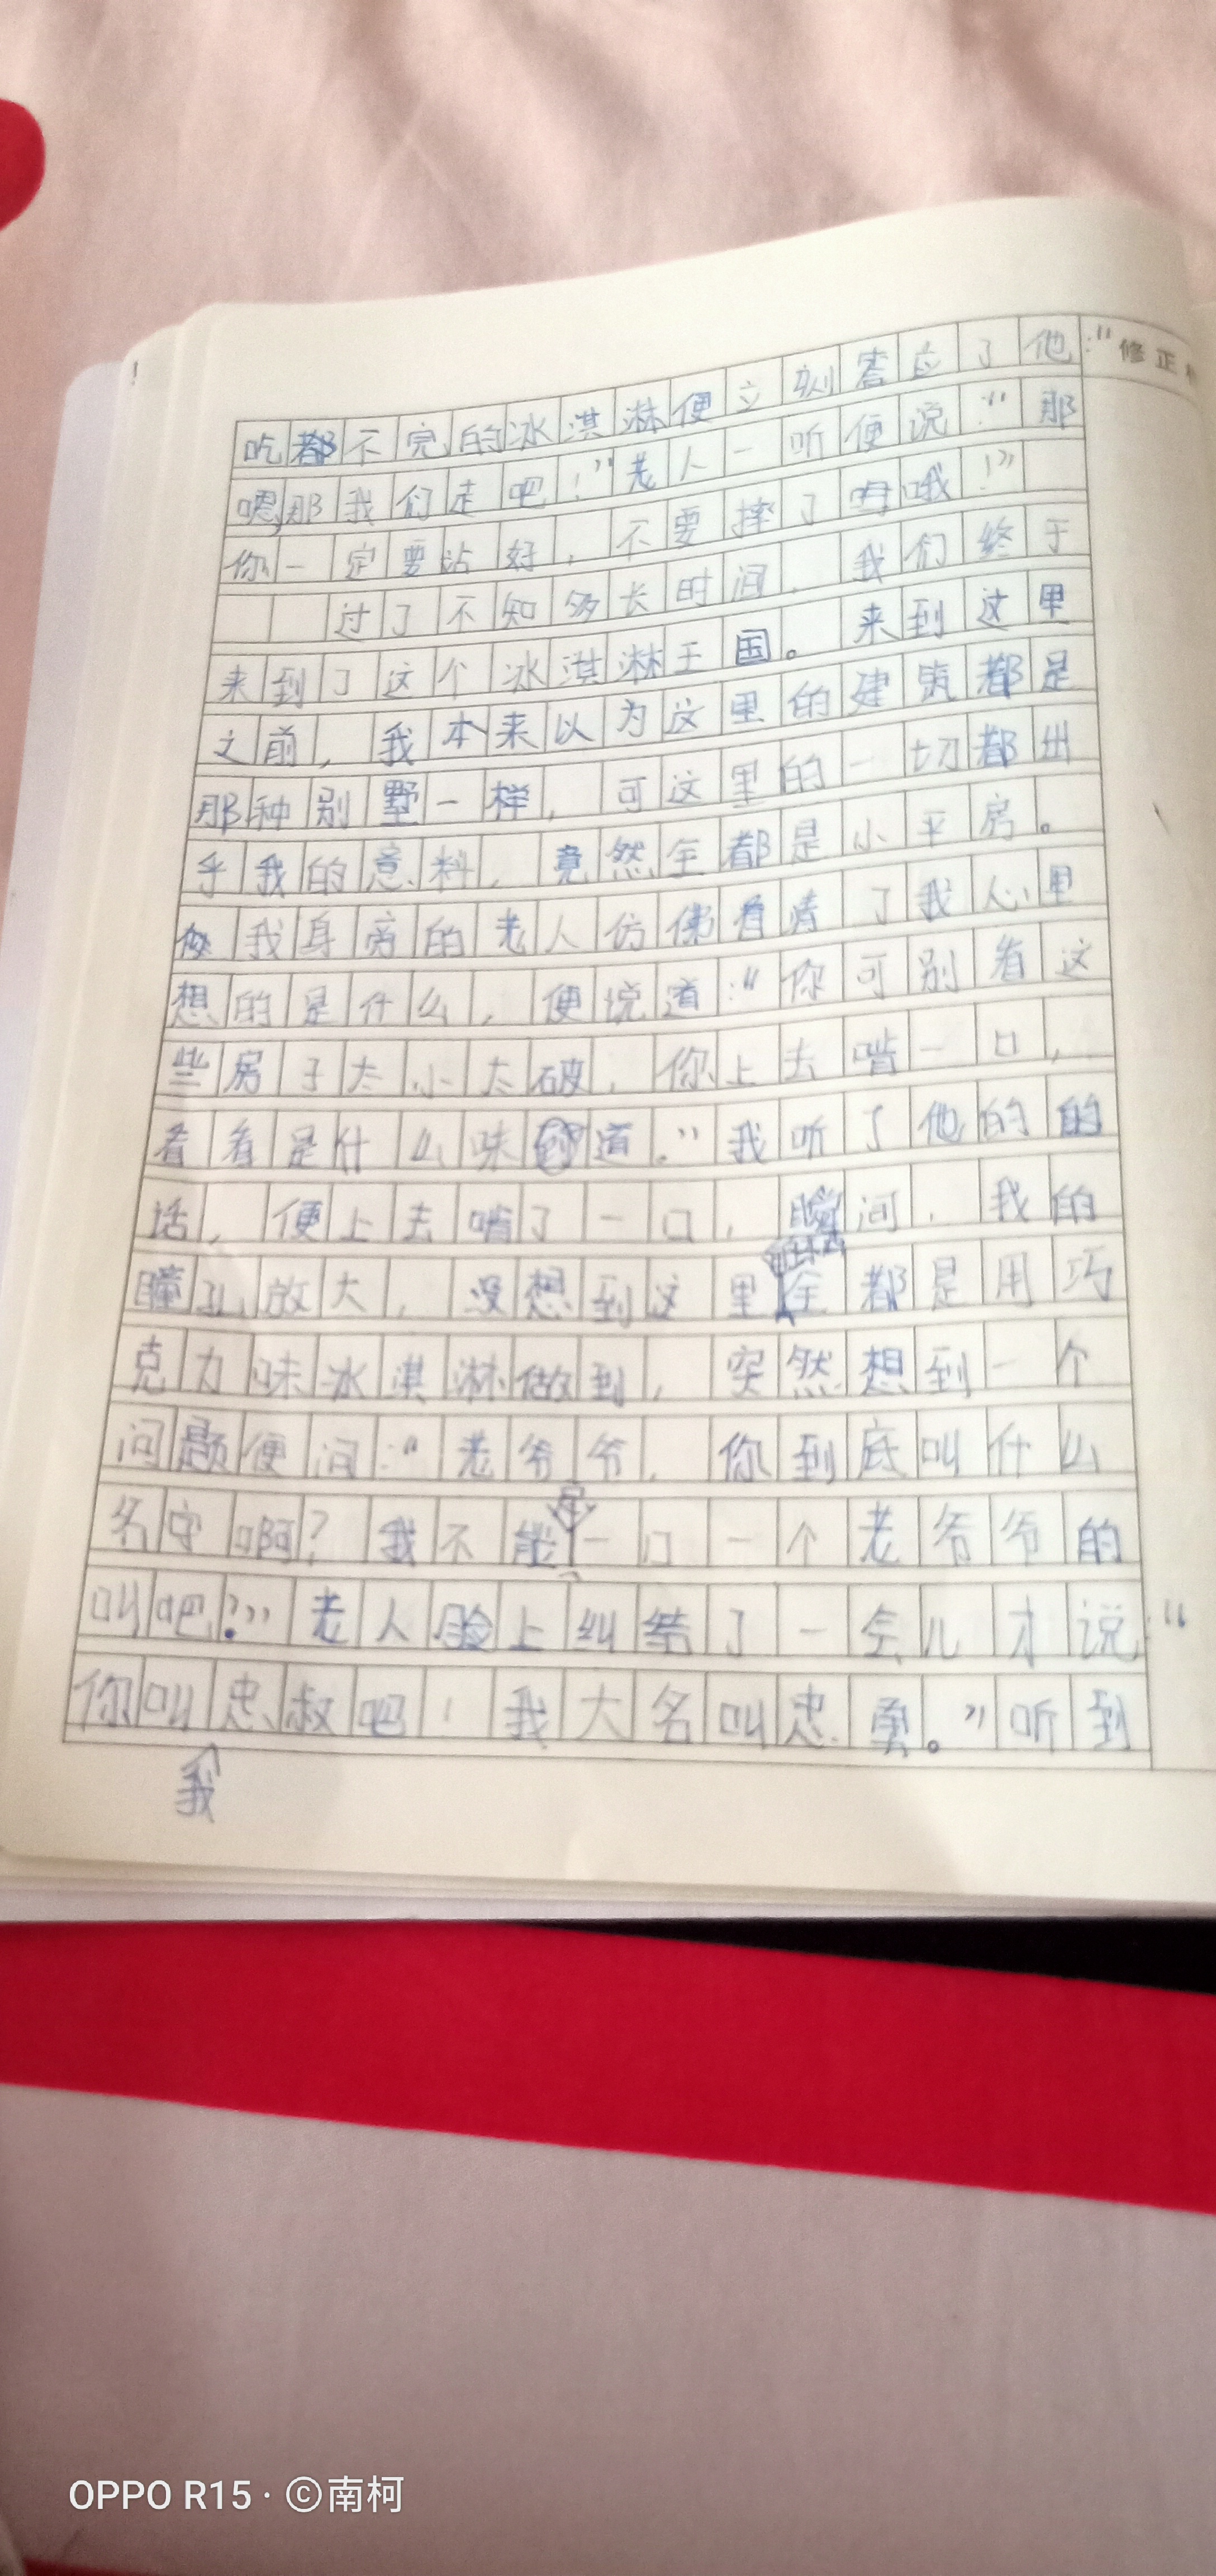 吃都不完的冰淇淋便立刻答应了他:“
修正
嗯,那我们走吧!”老人一听便说:“那
你一定要站好,不要摔了哦!”
过了不知多长时间,我们终于
来到了这个冰淇淋王国。来到这里
之前,我本来以为这里的建筑都是
那种别墅一样,可这里的一切都出
乎我的意料,竟然全都是小平房。
我身旁的老人仿佛看清了我心里
想的是什么,便说道:“你可别看这
些房子太小太破,你上去啃一口,
看看是什么味道。”我听了他的的
话,便上去啃了一口,瞬间,我的
瞳孔放大,没想到这里全都是用巧
克力味冰淇淋做到,突然想到一个
问题便问:“老爷爷,你到底叫什么
名字啊?我不能一口一个老爷爷的
叫吧?”老人脸上纠结了一会儿才说:“
你叫我忠叔吧!我大名叫忠勇。”听到
OPPO R15 · ©南柯